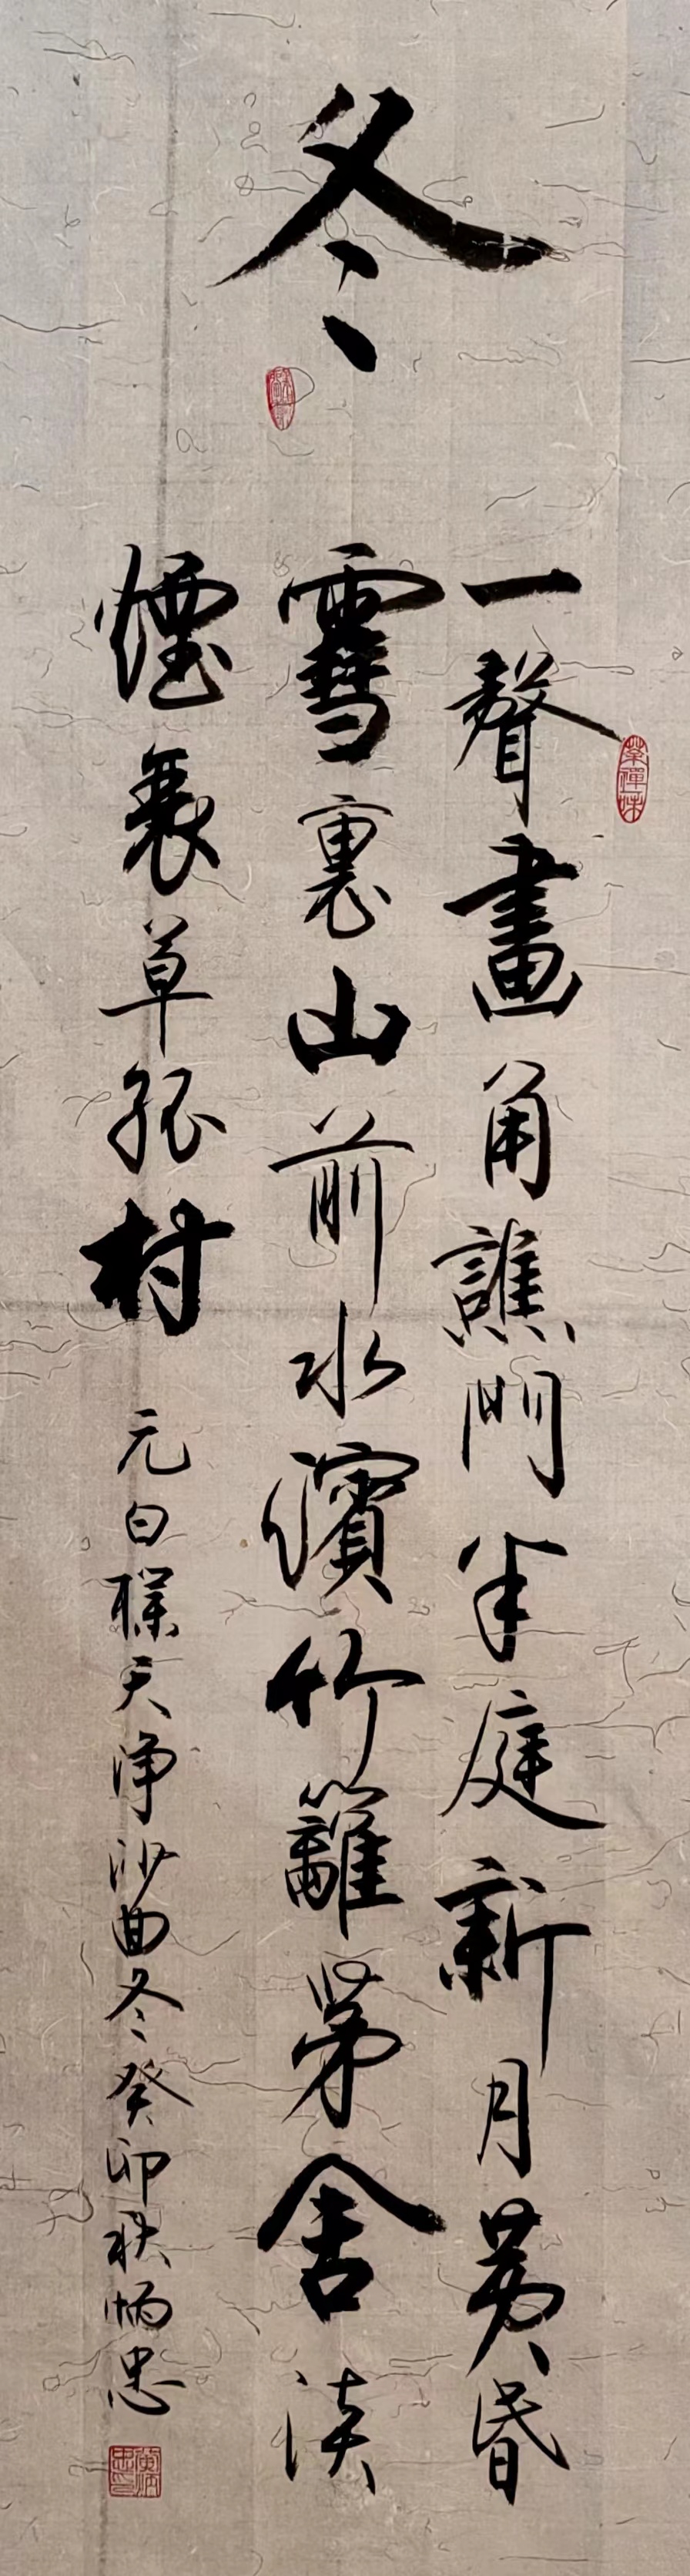 冬
一聲畫角譙門半庭新月黄昏
雪裏山前水濱竹籬茅舍淡
煙衰草孤村
元白樸天净沙曲冬癸卯秋炳忠
茶禪一味